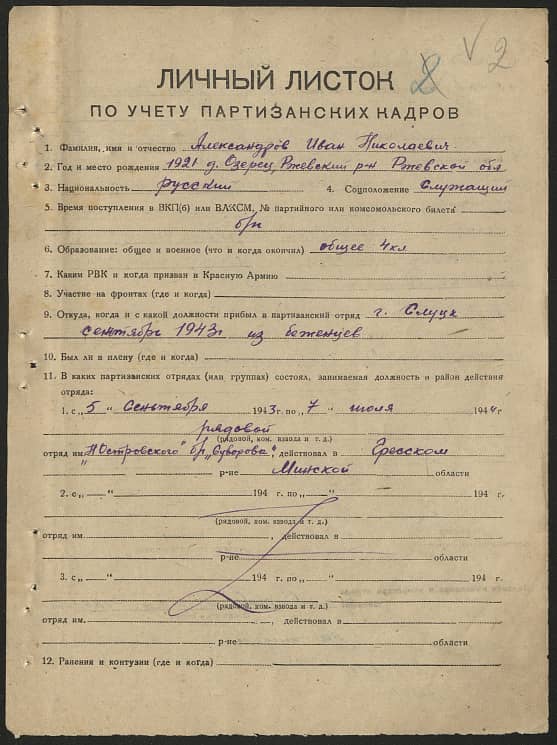 V 2
ЛИЧНЫЙ ЛИСТОК
ПО УЧЕТУ ПАРТИЗАНСКИХ КАДРОВ
1. Фамилия, имя и отчество Александров Иван Николаевич
2. Год и место рождения 1921 д. Озерец, Ржевский р-н Ржевской обл
3. Национальность русский 4. Соцположение служащий
5. Время поступления в ВКП(б) или ВЛКСМ, № партийного или комсомольского билета
б/п
6. Образование: общее и военное (что и когда окончил) общее 4 кл
7. Каким РВК и когда призван в Красную Армию
8. Участие на фронтах (где и когда)
9. Откуда, когда и с какой должности прибыл в партизанский отряд г. Слуцк
сентябрь 1943г из беженцев
10. Был ли в плену (где и когда)
11. В каких партизанских отрядах (или группах) состоял, занимаемая должность и район действия
отряда:
1. с „5 „ Сентября 1943г. по „7 „ июля 1944г
рядовой
(рядовой, ком. взвода и т. д.)
отряд им „Н Островского" бр. „Суворова", действовал в Гресском
р-не Минской области
2. с „ „ 194 г. по „ „ 194 г.
(рядовой, ком. взвода и т. д.)
отряд им. , действовал в
р-не области
3. с „ „ 194 г. по „ „ 194 г.
(рядовой, ком. взвода и т. д.)
отряд им. , действовал в
р-не области
12. Ранения и контузии (где и когда)